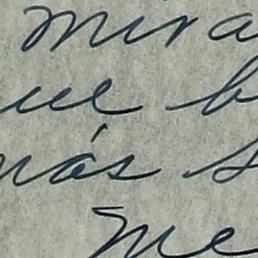 mira
ue b
más s
me